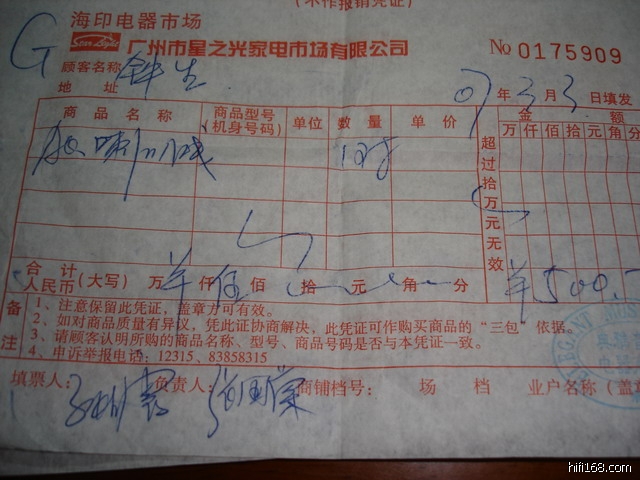 (不作报销凭证)
海印电器市场
Star Light 广州市星之光家电市场有限公司 No 0175909
G
顾客名称 钟生
地 址 07年3月3日填发
商品名称 商品型号(机身号码) 单位 数量 单价 超过拾万元无效 金额
万 仟 佰 拾 元 角 分
喇叭线
合计人民币(大写) 万 仟 伍 佰 拾 元 角 分 ¥500
备注
1、注意保留此凭证,盖章方可有效。
2、如对商品质量有异议,凭此证协商解决,此凭证可作购买商品的“三包”依据。
3、请顾客认明所购的商品名称、型号、商品号码是否与本凭证一致。
4、申诉举报电话:12315、83858315
填票人: 负责人: 商铺档号: 场 档 业户名称(盖
ELEGANT
hifi168.com